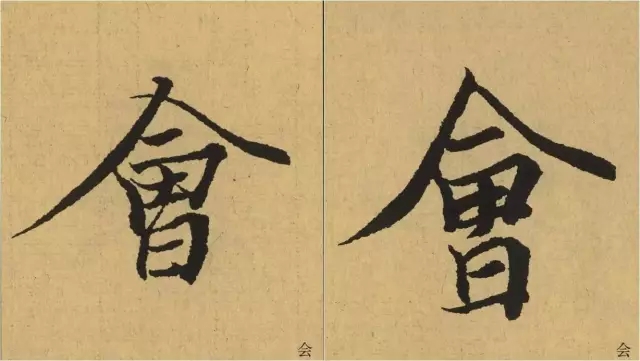 會 會
会 会